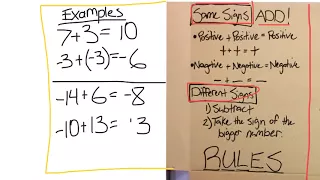 Examples
7+3=10
-3+(-3)=-6
-14+6=-8
-10+13=3
Same Signs ADD!
•Positive + Positive = Positive
+ + + = +
•Negative + Negative = Negative
- + - = -
Different Signs
1) Subtract
2) Take the sign of the
bigger number.
RULES